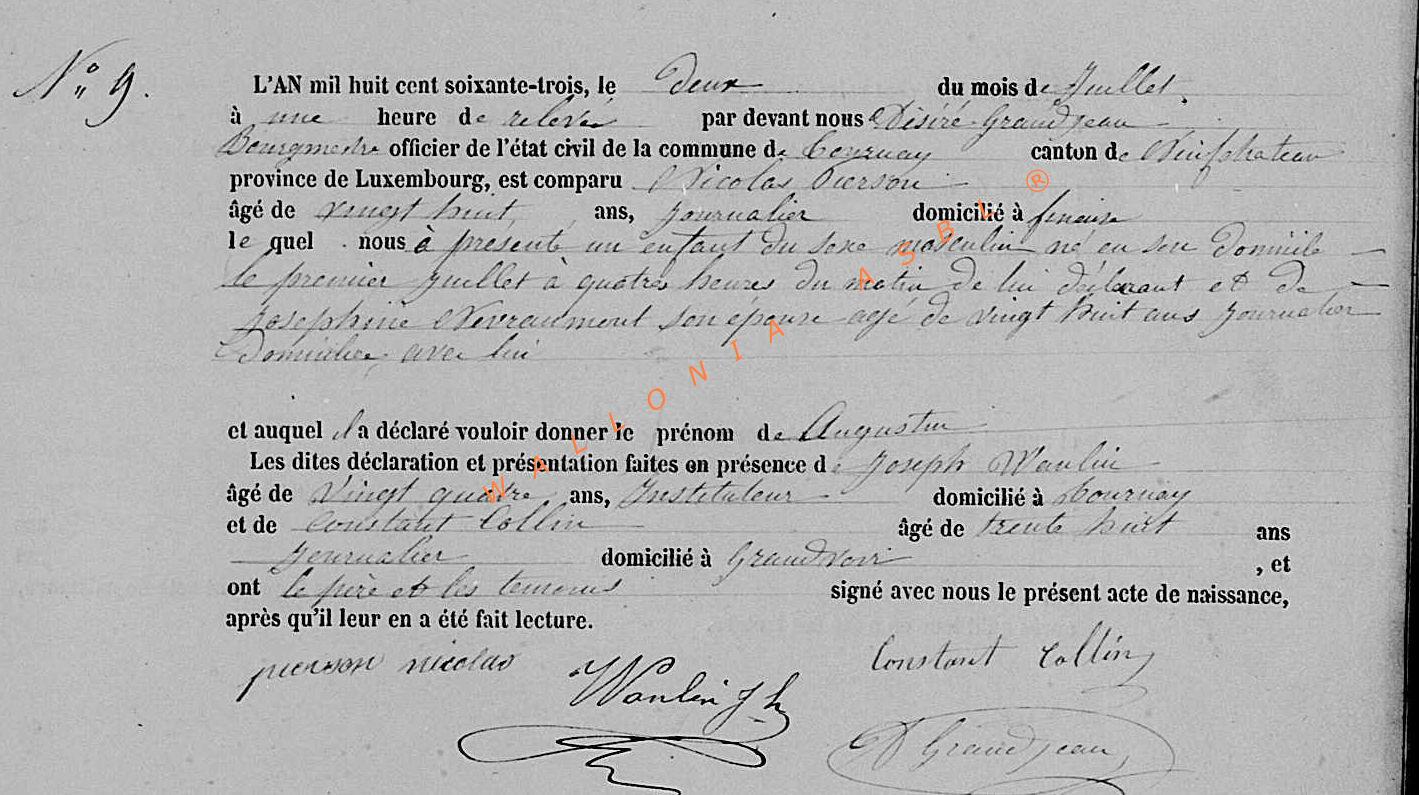 N° 9.
L'AN mil huit cent soixante-trois, le Deux du mois de Juillet.
à une heure de relevée par devant nous Désiré Grandjean
Bourgmestre officier de l'état civil de la commune de Tournay canton de Neufchateau
province de Luxembourg, est comparu Nicolas Pierson
âgé de vingt huit ans, journalier domicilié à
le quel nous à présenté un enfant du sexe masculin né en son domicile
le premier juillet à quatre heures du matin de lui déclarant et de
Josephine Nevraumont son épouse agé de vingt huit ans journalier
Domiciliée avec lui
et auquel il a déclaré vouloir donner le prénom de Augustin
Les dites déclaration et présentation faites en présence de Joseph Wanlin
âgé de vingt quatre ans, Instituteur domicilié à Tournay
et de Constant Collin âgé de trente huit ans
journalier domicilié à Grandvoir , et
ont le père et les temoins signé avec nous le présent acte de naissance,
après qu'il leur en a été fait lecture.
pierson nicolas
Wanlin Jh
Constant Collin
D Grandjean
WALLONIA ASBL ®